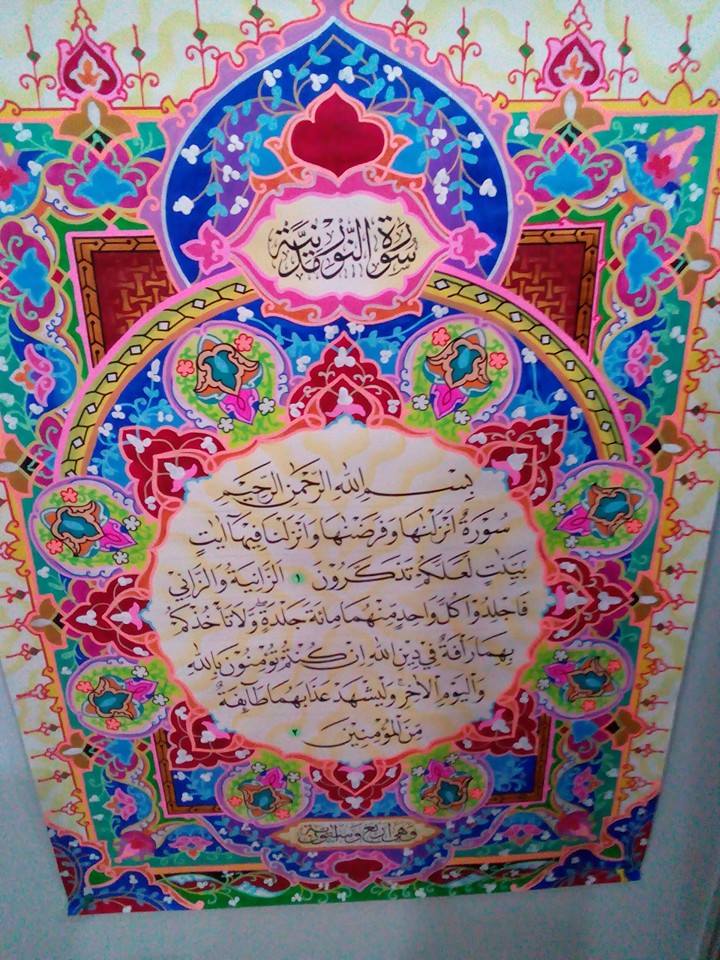 سُوْرَةُ النُّوْرِ مَدَنِيَّة
بِسْمِ اللهِ الرَّحْمٰنِ الرَّحِيْمِ
سُوْرَةٌ اَنْزَلْنٰهَا وَفَرَضْنٰهَا وَاَنْزَلْنَا فِيْهَآ اٰيٰتٍ
بَيِّنٰتٍ لَعَلَّكُمْ تَذَكَّرُوْنَ ١ اَلزَّانِيَةُ وَالزَّانِيْ
فَاجْلِدُوْا كُلَّ وَاحِدٍ مِنْهُمَا مِائَةَ جَلْدَةٍ ۖ وَّلَا تَأْخُذْكُمْ
بِهِمَا رَأْفَةٌ فِيْ دِيْنِ اللهِ اِنْ كُنْتُمْ تُؤْمِنُوْنَ بِاللهِ
وَالْيَوْمِ الْاٰخِرِ ۚ وَلْيَشْهَدْ عَذَابَهُمَا طَآئِفَةٌ
مِنَ الْمُؤْمِنِيْنَ ٢
وهي اربع وستون